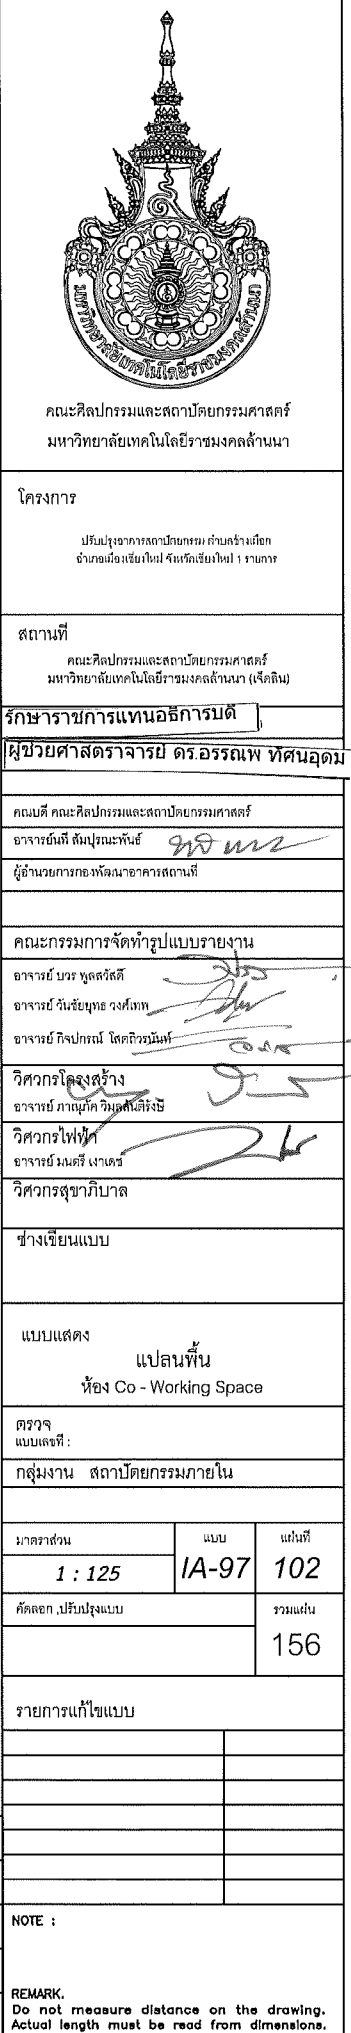 มหาวิทยาลัยเทคโนโลยีราชมงคลล้านนา
คณะศิลปกรรมและสถาปัตยกรรมศาสตร์
มหาวิทยาลัยเทคโนโลยีราชมงคลล้านนา
โครงการ
ปรับปรุงอาคารสถาปัตยกรรม ตำบลช้างเผือก
อำเภอเมืองเชียงใหม่ จังหวัดเชียงใหม่ 1 รายการ
สถานที่
คณะศิลปกรรมและสถาปัตยกรรมศาสตร์
มหาวิทยาลัยเทคโนโลยีราชมงคลล้านนา (เจ็ดลิน)
รักษาราชการแทนอธิการบดี
ผู้ช่วยศาสตราจารย์ ดร.อรรณพ ทัศนอุดม
คณบดี คณะศิลปกรรมและสถาปัตยกรรมศาสตร์
อาจารย์นที สัมปุรณะพันธ์
ผู้อำนวยการกองพัฒนาอาคารสถานที่
คณะกรรมการจัดทำรูปแบบรายงาน
อาจารย์ บวร พูลสวัสดิ์
อาจารย์ วันชัยยุทธ วงศ์เทพ
อาจารย์ กิจปกรณ์
วิศวกรโครงสร้าง
อาจารย์ ภาณุภัค
วิศวกรไฟฟ้า
อาจารย์ มนตรี เงาเดช
วิศวกรสุขาภิบาล
ช่างเขียนแบบ
แบบแสดง
แปลนพื้น
ห้อง Co - Working Space
ตรวจ
แบบเลขที่ :
กลุ่มงาน สถาปัตยกรรมภายใน
มาตราส่วน แบบ แผ่นที่
1 : 125 IA-97 102
คัดลอก ,ปรับปรุงแบบ รวมแผ่น
156
รายการแก้ไขแบบ
NOTE :
REMARK.
Do not measure distance on the drawing.
Actual length must be read from dimensions.